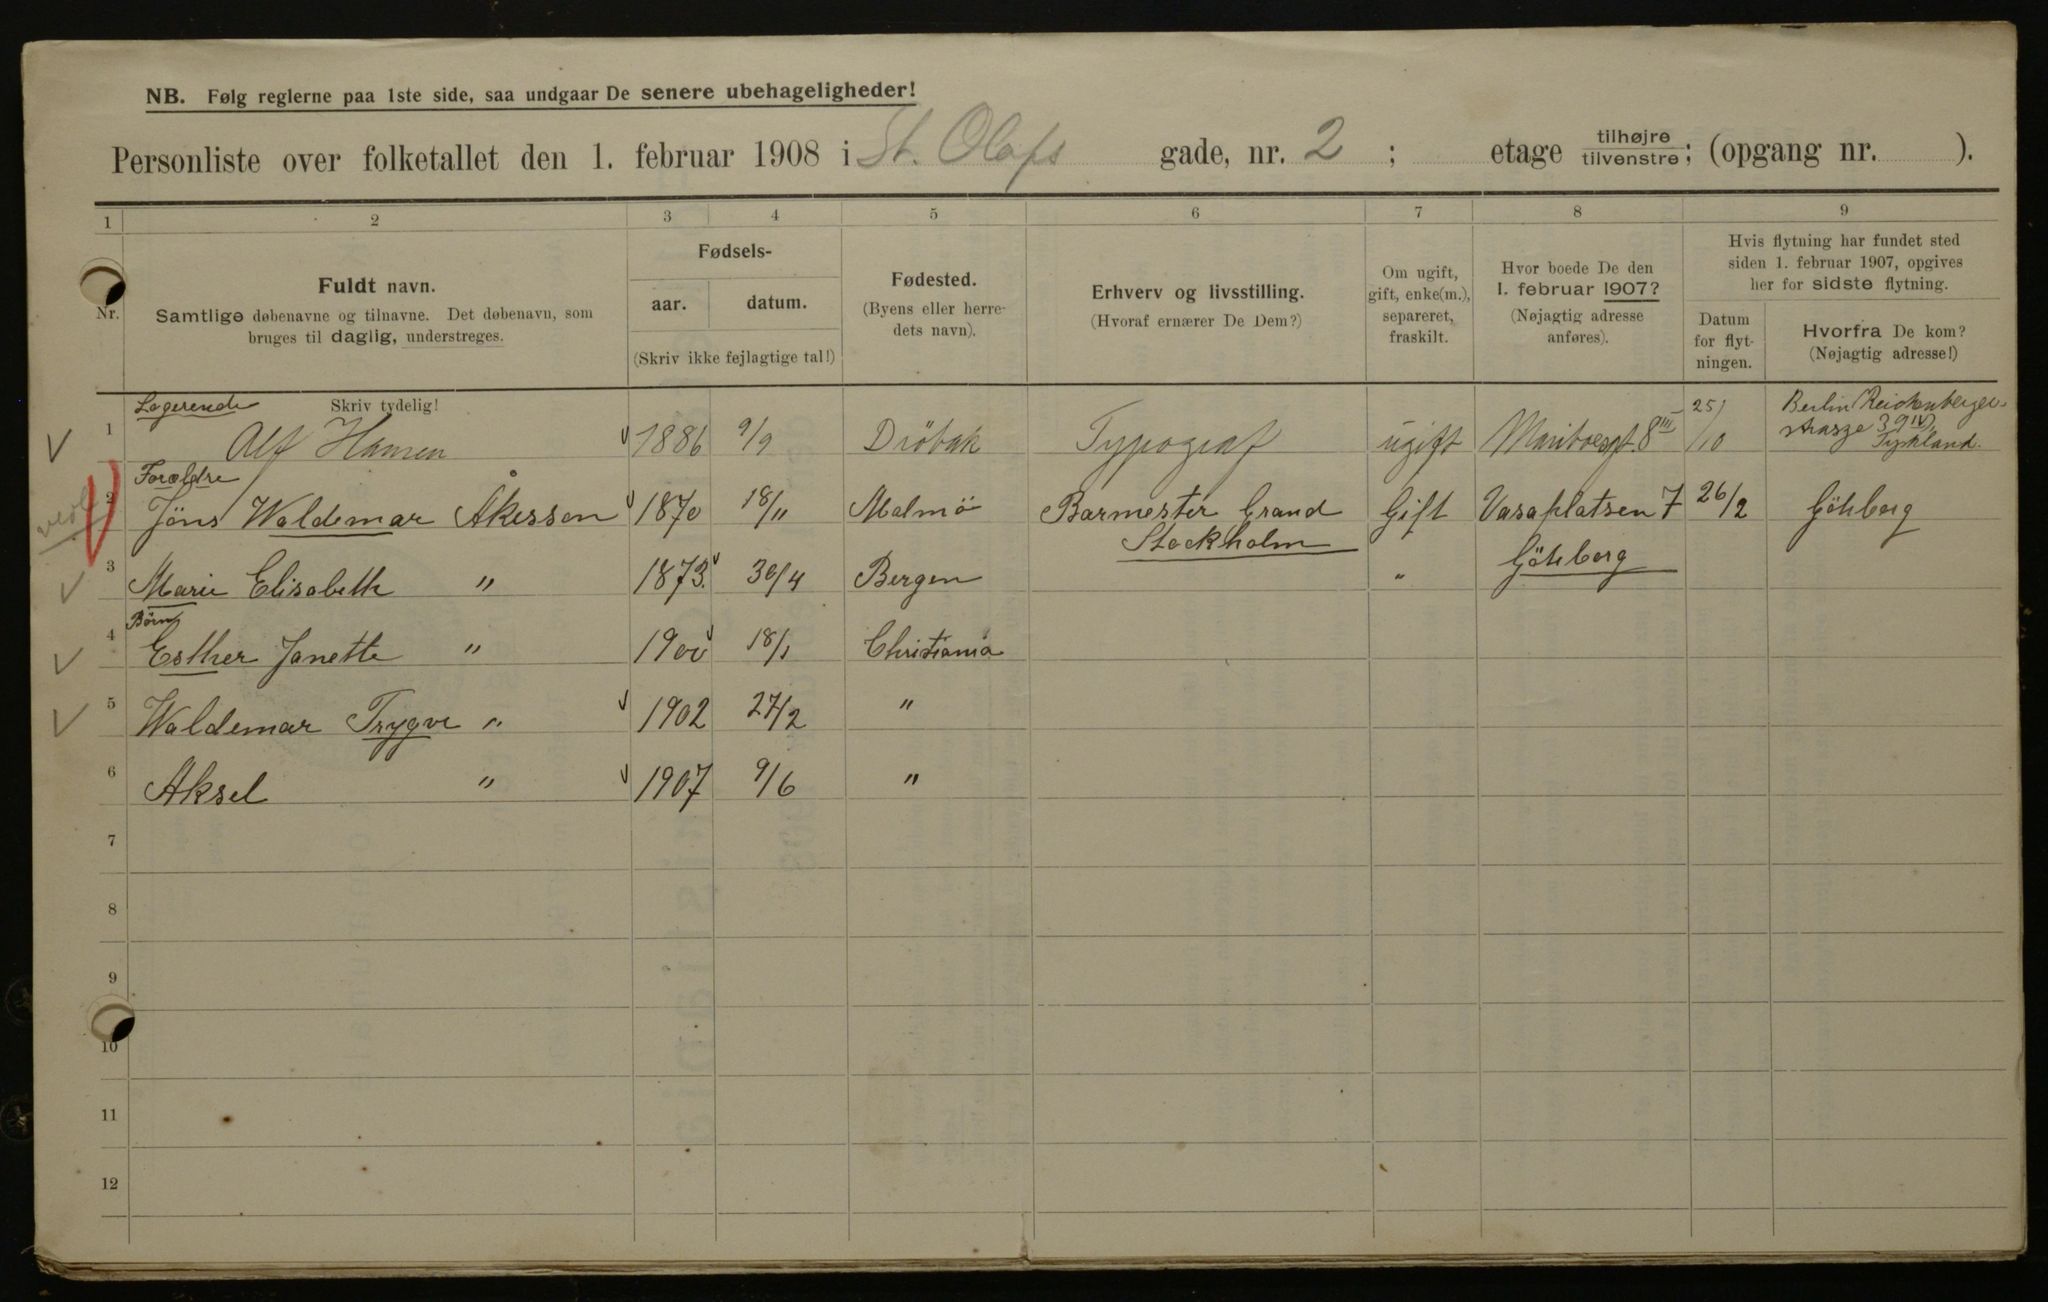 NB. Følg reglerne paa 1ste side, saa undgaar De senere ubehageligheder!
Personliste over folketallet den 1. februar 1908 i St. Olafs gade, nr. 2 ; etage tilhøjre tilvenstre; (opgang nr. ).
1 2 3 4 5 6 7 8 9
Nr.
Fuldt navn.
Samtlige døbenavne og tilnavne. Det døbenavn, som
bruges til daglig, understreges.
Fødsels-
aar. datum.
(Skriv ikke fejlagtige tal!)
Fødested.
(Byens eller herre-
dets navn).
Erhverv og livsstilling.
(Hvoraf ernærer De Dem?)
Om ugift,
gift, enke(m.),
separeret,
fraskilt.
Hvor boede De den
1. februar 1907?
(Nøjagtig adresse
anføres).
Hvis flytning har fundet sted
siden 1. februar 1907, opgives
her for sidste flytning.
Datum
for flyt-
ningen.
Hvorfra De kom?
(Nøjagtig adresse!)
Logerende Skriv tydelig!
1 Alf Hansen 1886 9/9 Dröbak Typograf ugift Mariboesgt. 8 III 25/10 Berlin Reichenberger-
strasze 39 IV
Tyskland.
Forældre
2 Jöns Waldemar Åkesson 1870 18/11 Malmö Barmester Grand Gift Vasaplatsen 7 26/2 Göteborg
Stockholm Göteborg
3 Marie Elisabeth " 1873. 30/4 Bergen "
Börn
4 Esther Janette " 1900 18/1 Christiania
5 Waldemar Trygve " 1902 27/2 "
6 Aksel " 1907 9/6 "
7
8
9
10
11
12